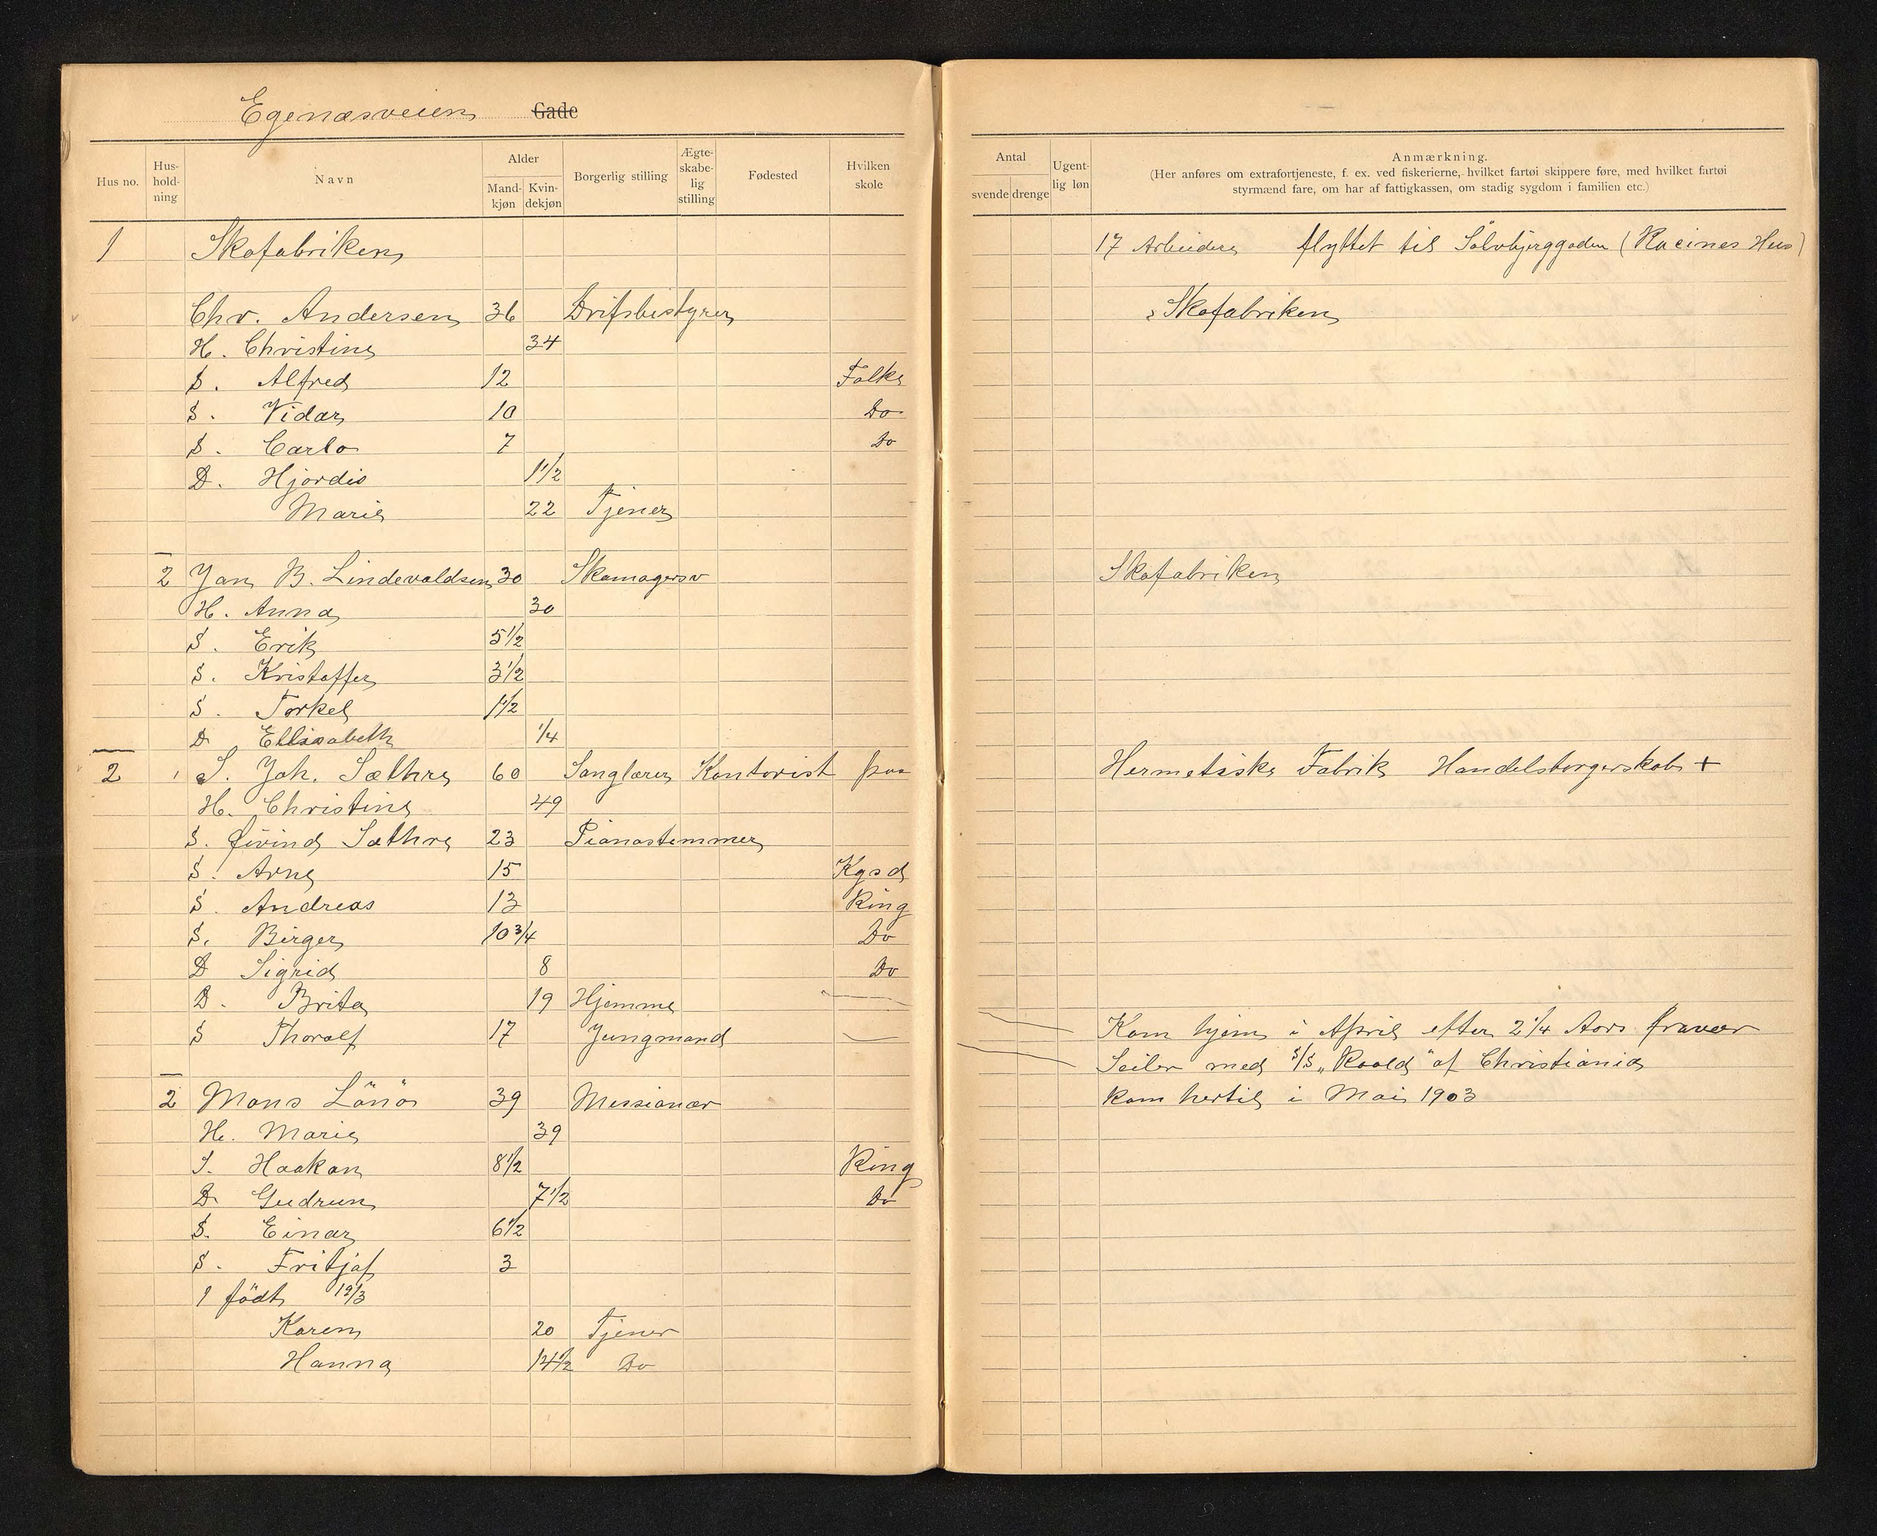 Egenæsveien Gade
Hus no. Hus-hold-ning Navn Alder Mand-kjøn Kvin-dekjøn Borgerlig stilling Ægte-skabe-lig stilling Fødested Hvilken skole
Antal svende drenge Ugent-lig løn Anmærkning.
(Her anføres om extrafortjeneste, f. ex. ved fiskerierne, hvilket fartøi skippere føre, med hvilket fartøi
styrmænd fare, om har af fattigkassen, om stadig sygdom i familien etc.)
1 Skofabriken 17 Arbeidere flyttet til Sölvbjerggaden (Racines Hus)
Chr. Andersen 36 Drifsbestyrer Skofabriken
H. Christine 34
S. Alfred 12 Folke
S. Vidar 10 Do
S. Carlo 7 Do
D. Hjordis 1 1/2
Marie 22 Tjener
2 Jan B. Lindevaldsen 30 Skomagersv Skofabriken
H. Anna 30
S. Erik 5 1/2
S. Kristoffer 3 1/2
S. Torkel 1 1/2
D Ellisabeth 1/4
2 1 S. Joh. Sæthre 60 Sanglærer Kontorist paa Hermetiske Fabrik Handelsborgerskab +
H. Christine 49
S. Øivind Sæthre 23 Pianostemmer
S. Arne 15 Kgsd
S. Andreas 13 Ring
S. Birger 10 3/4 Do
D Sigrid 8 Do
D. Brita 19 Hjemme
S Thoralf 17 Jungmand Kom hjem i April efter 2 1/4 Aars fravær
Seiler med S/S „Roald" af Christiania
2 Mons Lönö 39 Messionær kom hertil i Mai 1903
H. Marie 39
S. Haakon 8 1/2 Ring
D Gudrun 7 1/2 Do
S. Einar 6 1/2
S. Fritjof 3
1 födt 12/3
Karen 20 Tjener
Hanna 14 1/2 Do